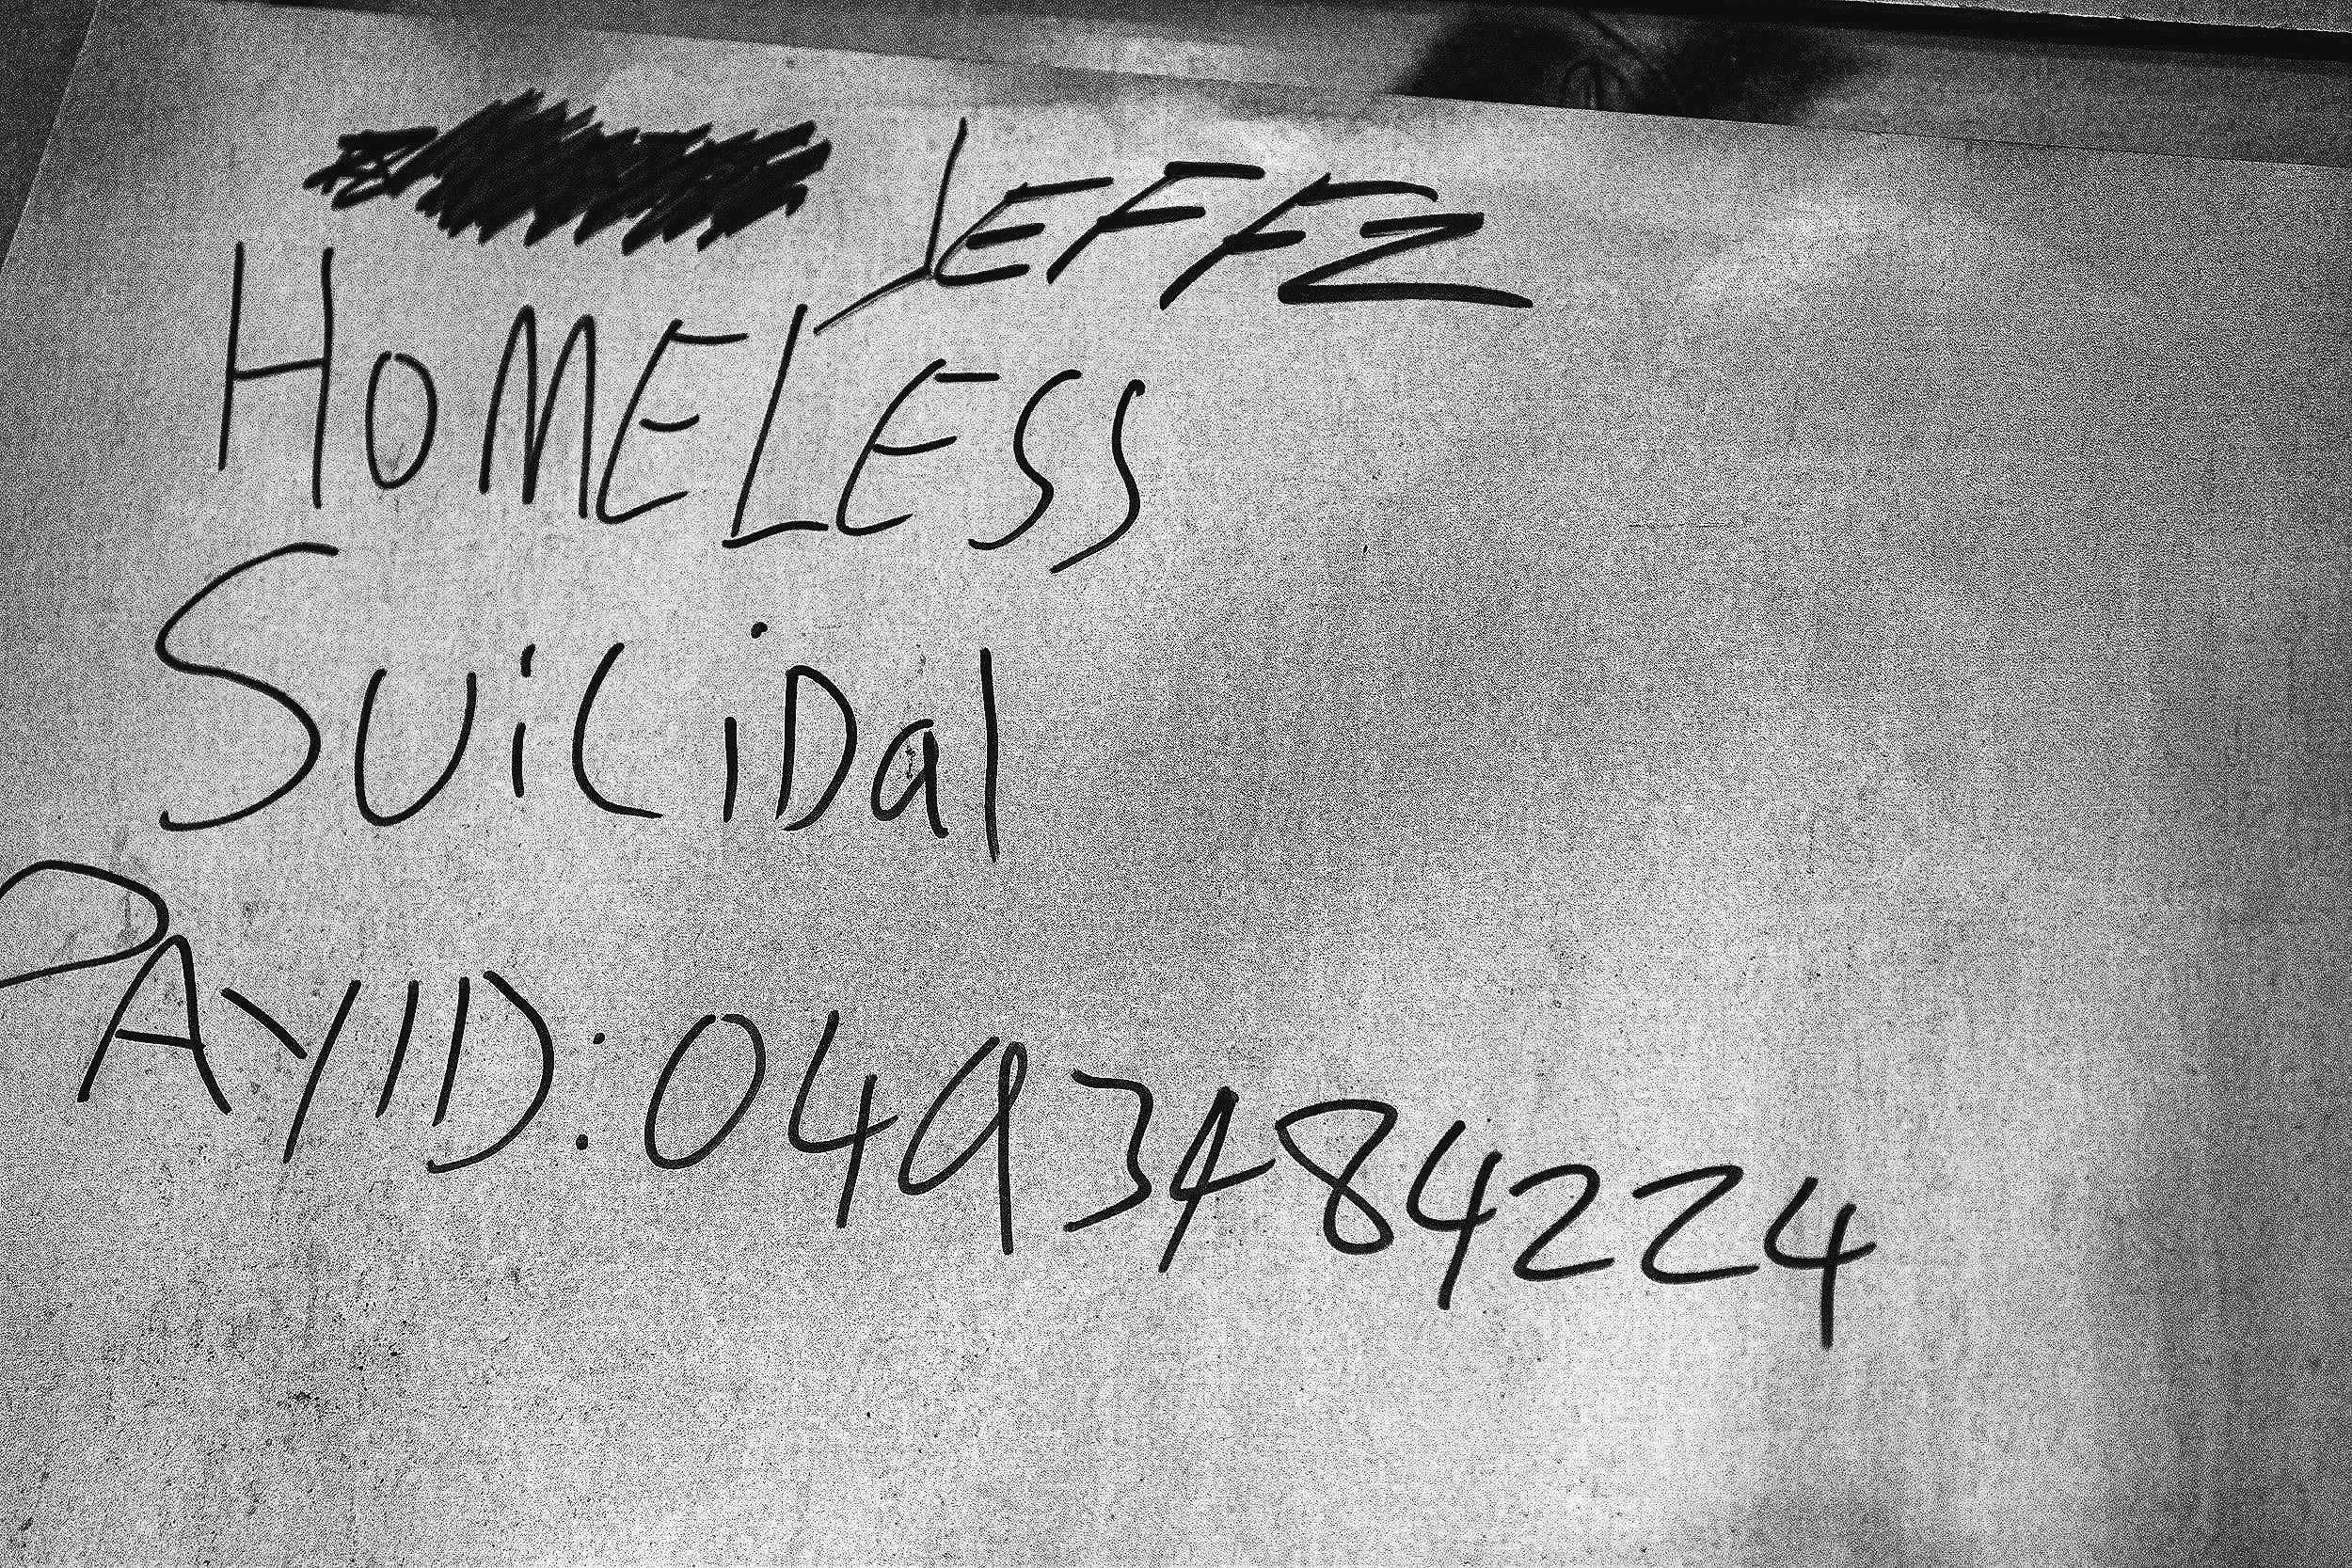 JEFFZ
HOMELESS
SUiCiDal
PAYID: 0493484224